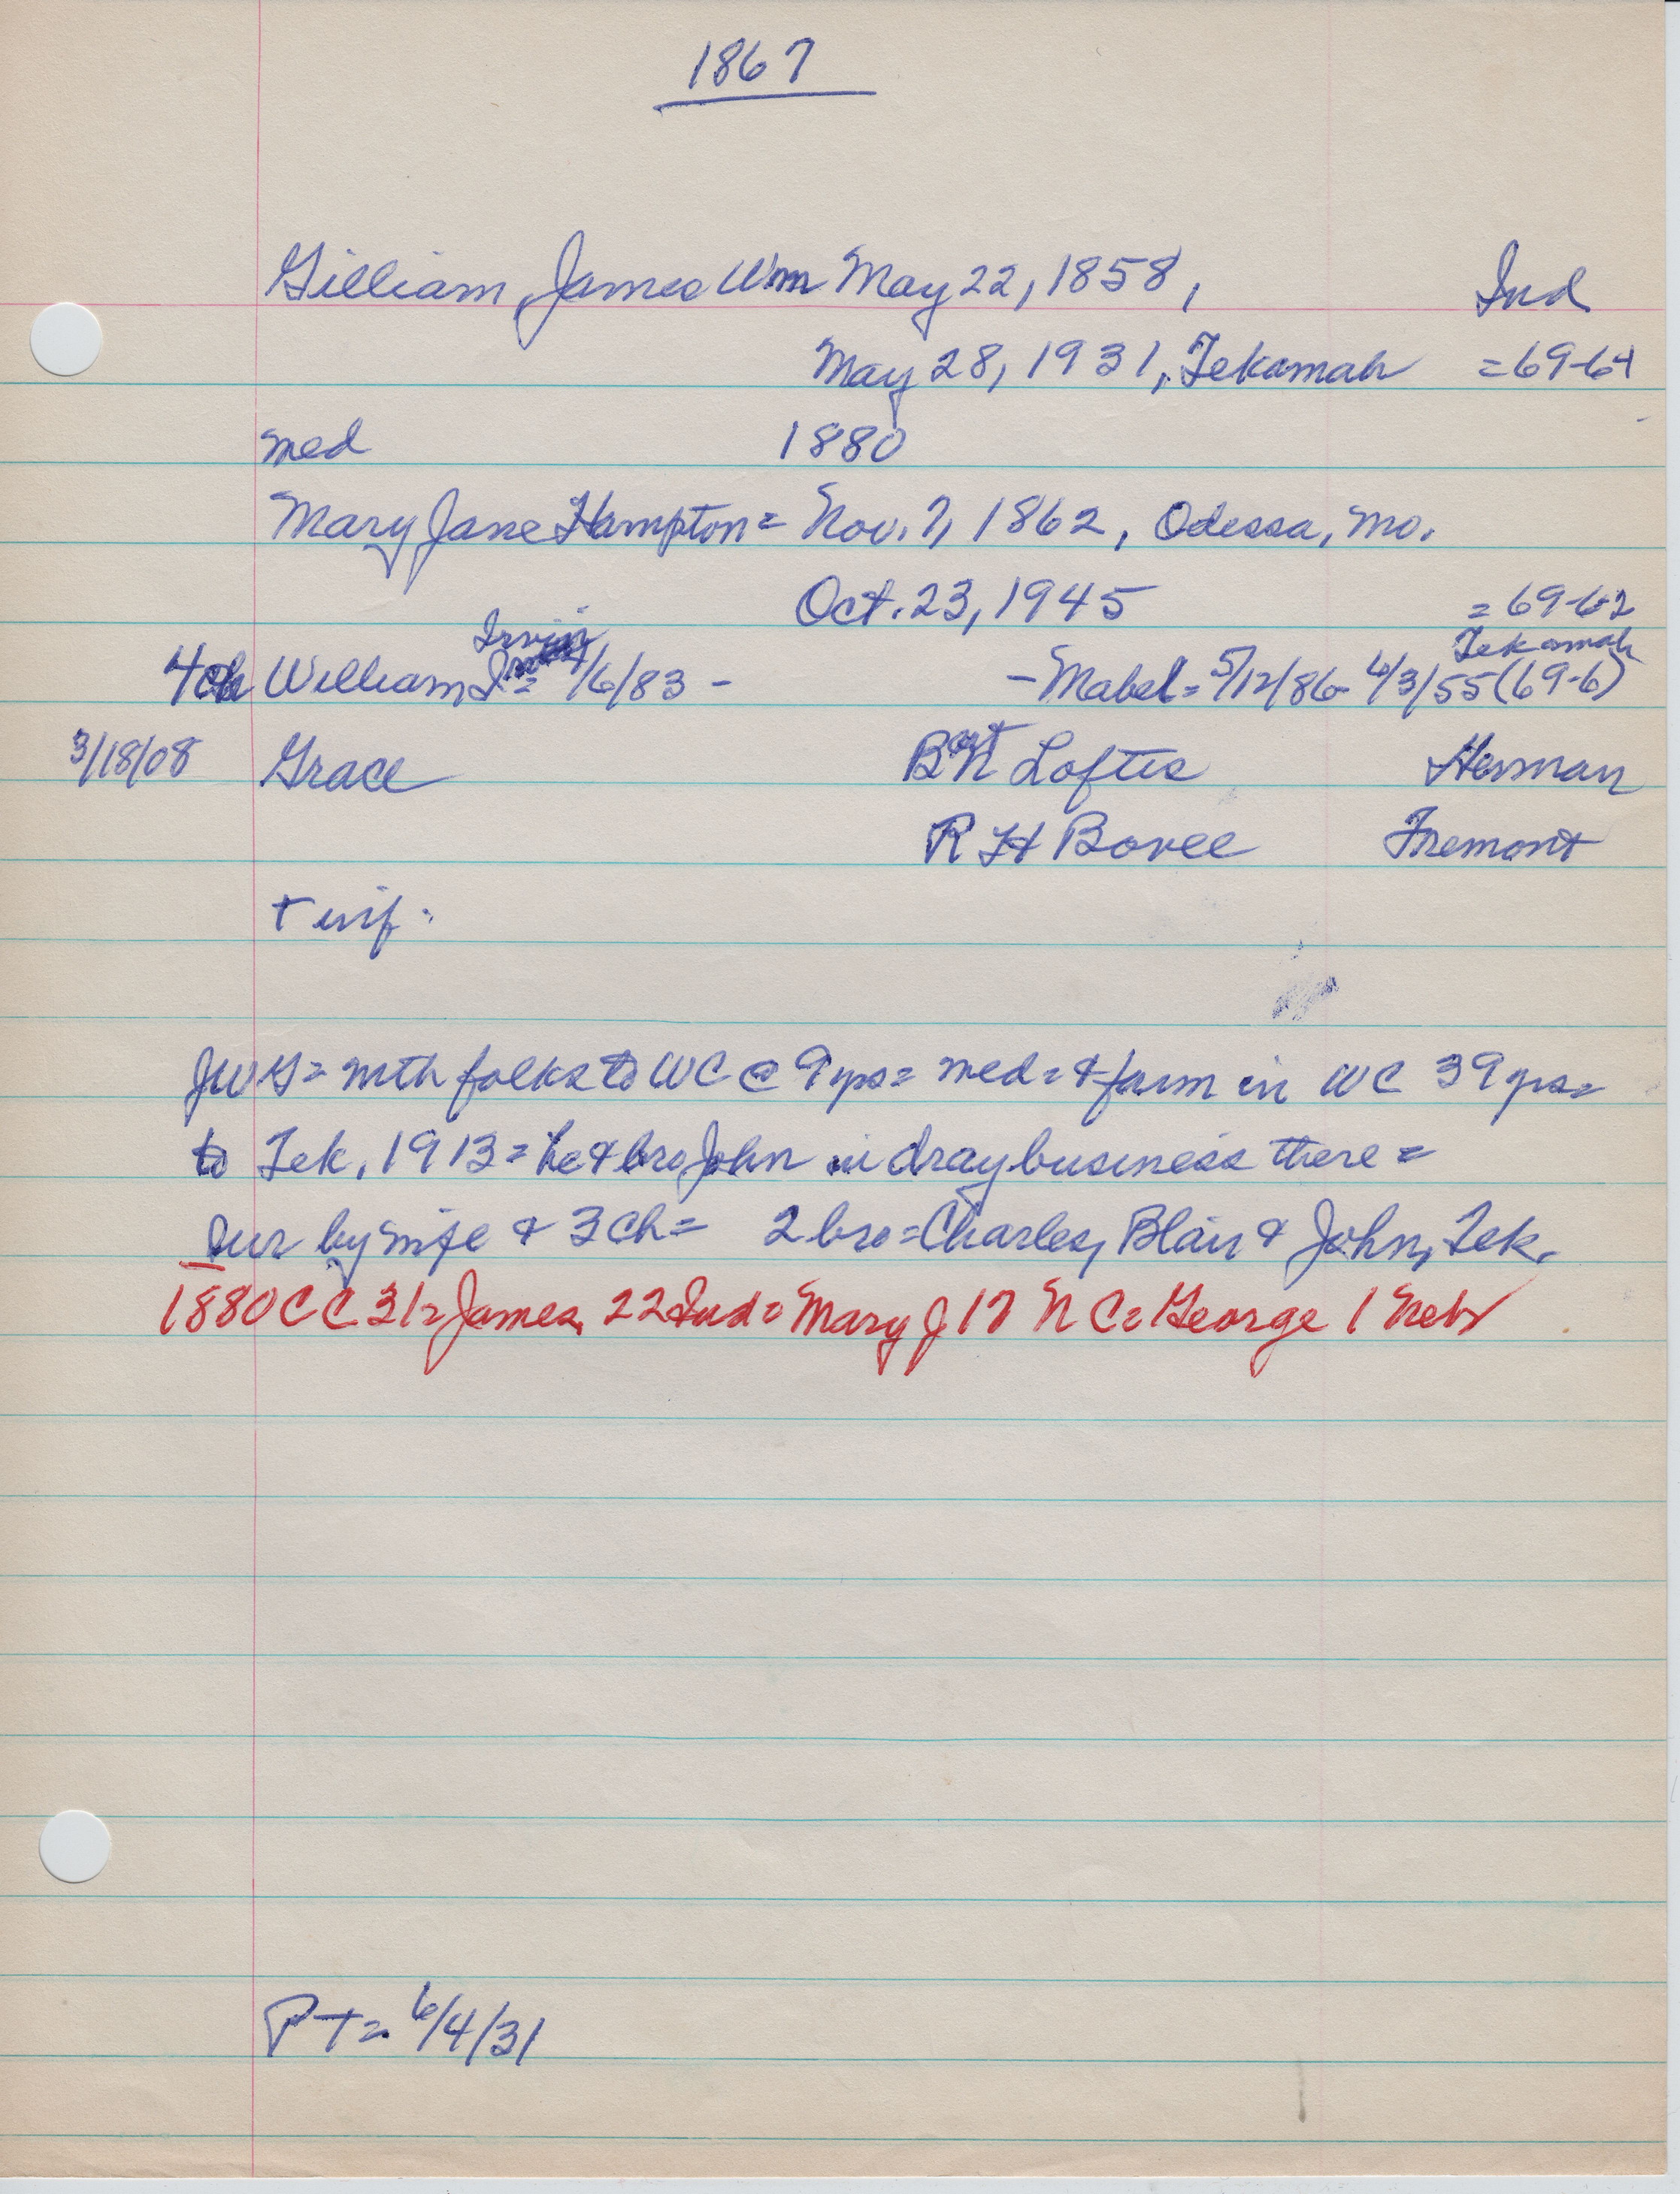 1867
Gilliam, James Wm May 22, 1858, Ind
May 28, 1931, Tekamah =69-64
med 1880
Mary Jane Hampton = Nov. 7, 1862, Odessa, Mo.
Oct. 23, 1945 =69-62
Irvin Tekamah
4ch William I = /6/83 - - Mabel = 5/12/86- 4/3/55 (69-6)
3/18/08 Grace Bert Loftis Herman
R H Bovee Fremont
+ inf.
JWG = with folks to WC @ 9 yrs = med = & farm in WC 39 yrs =
to Tek, 1913 = he & bro John in dray business there =
Sur by wife & 3 ch = 2 bro = Charles, Blair & John, Tek.
1880 C C 31 = James, 22 Ind = Mary J 17 N C = George 1 Neb
PT = 6/4/31